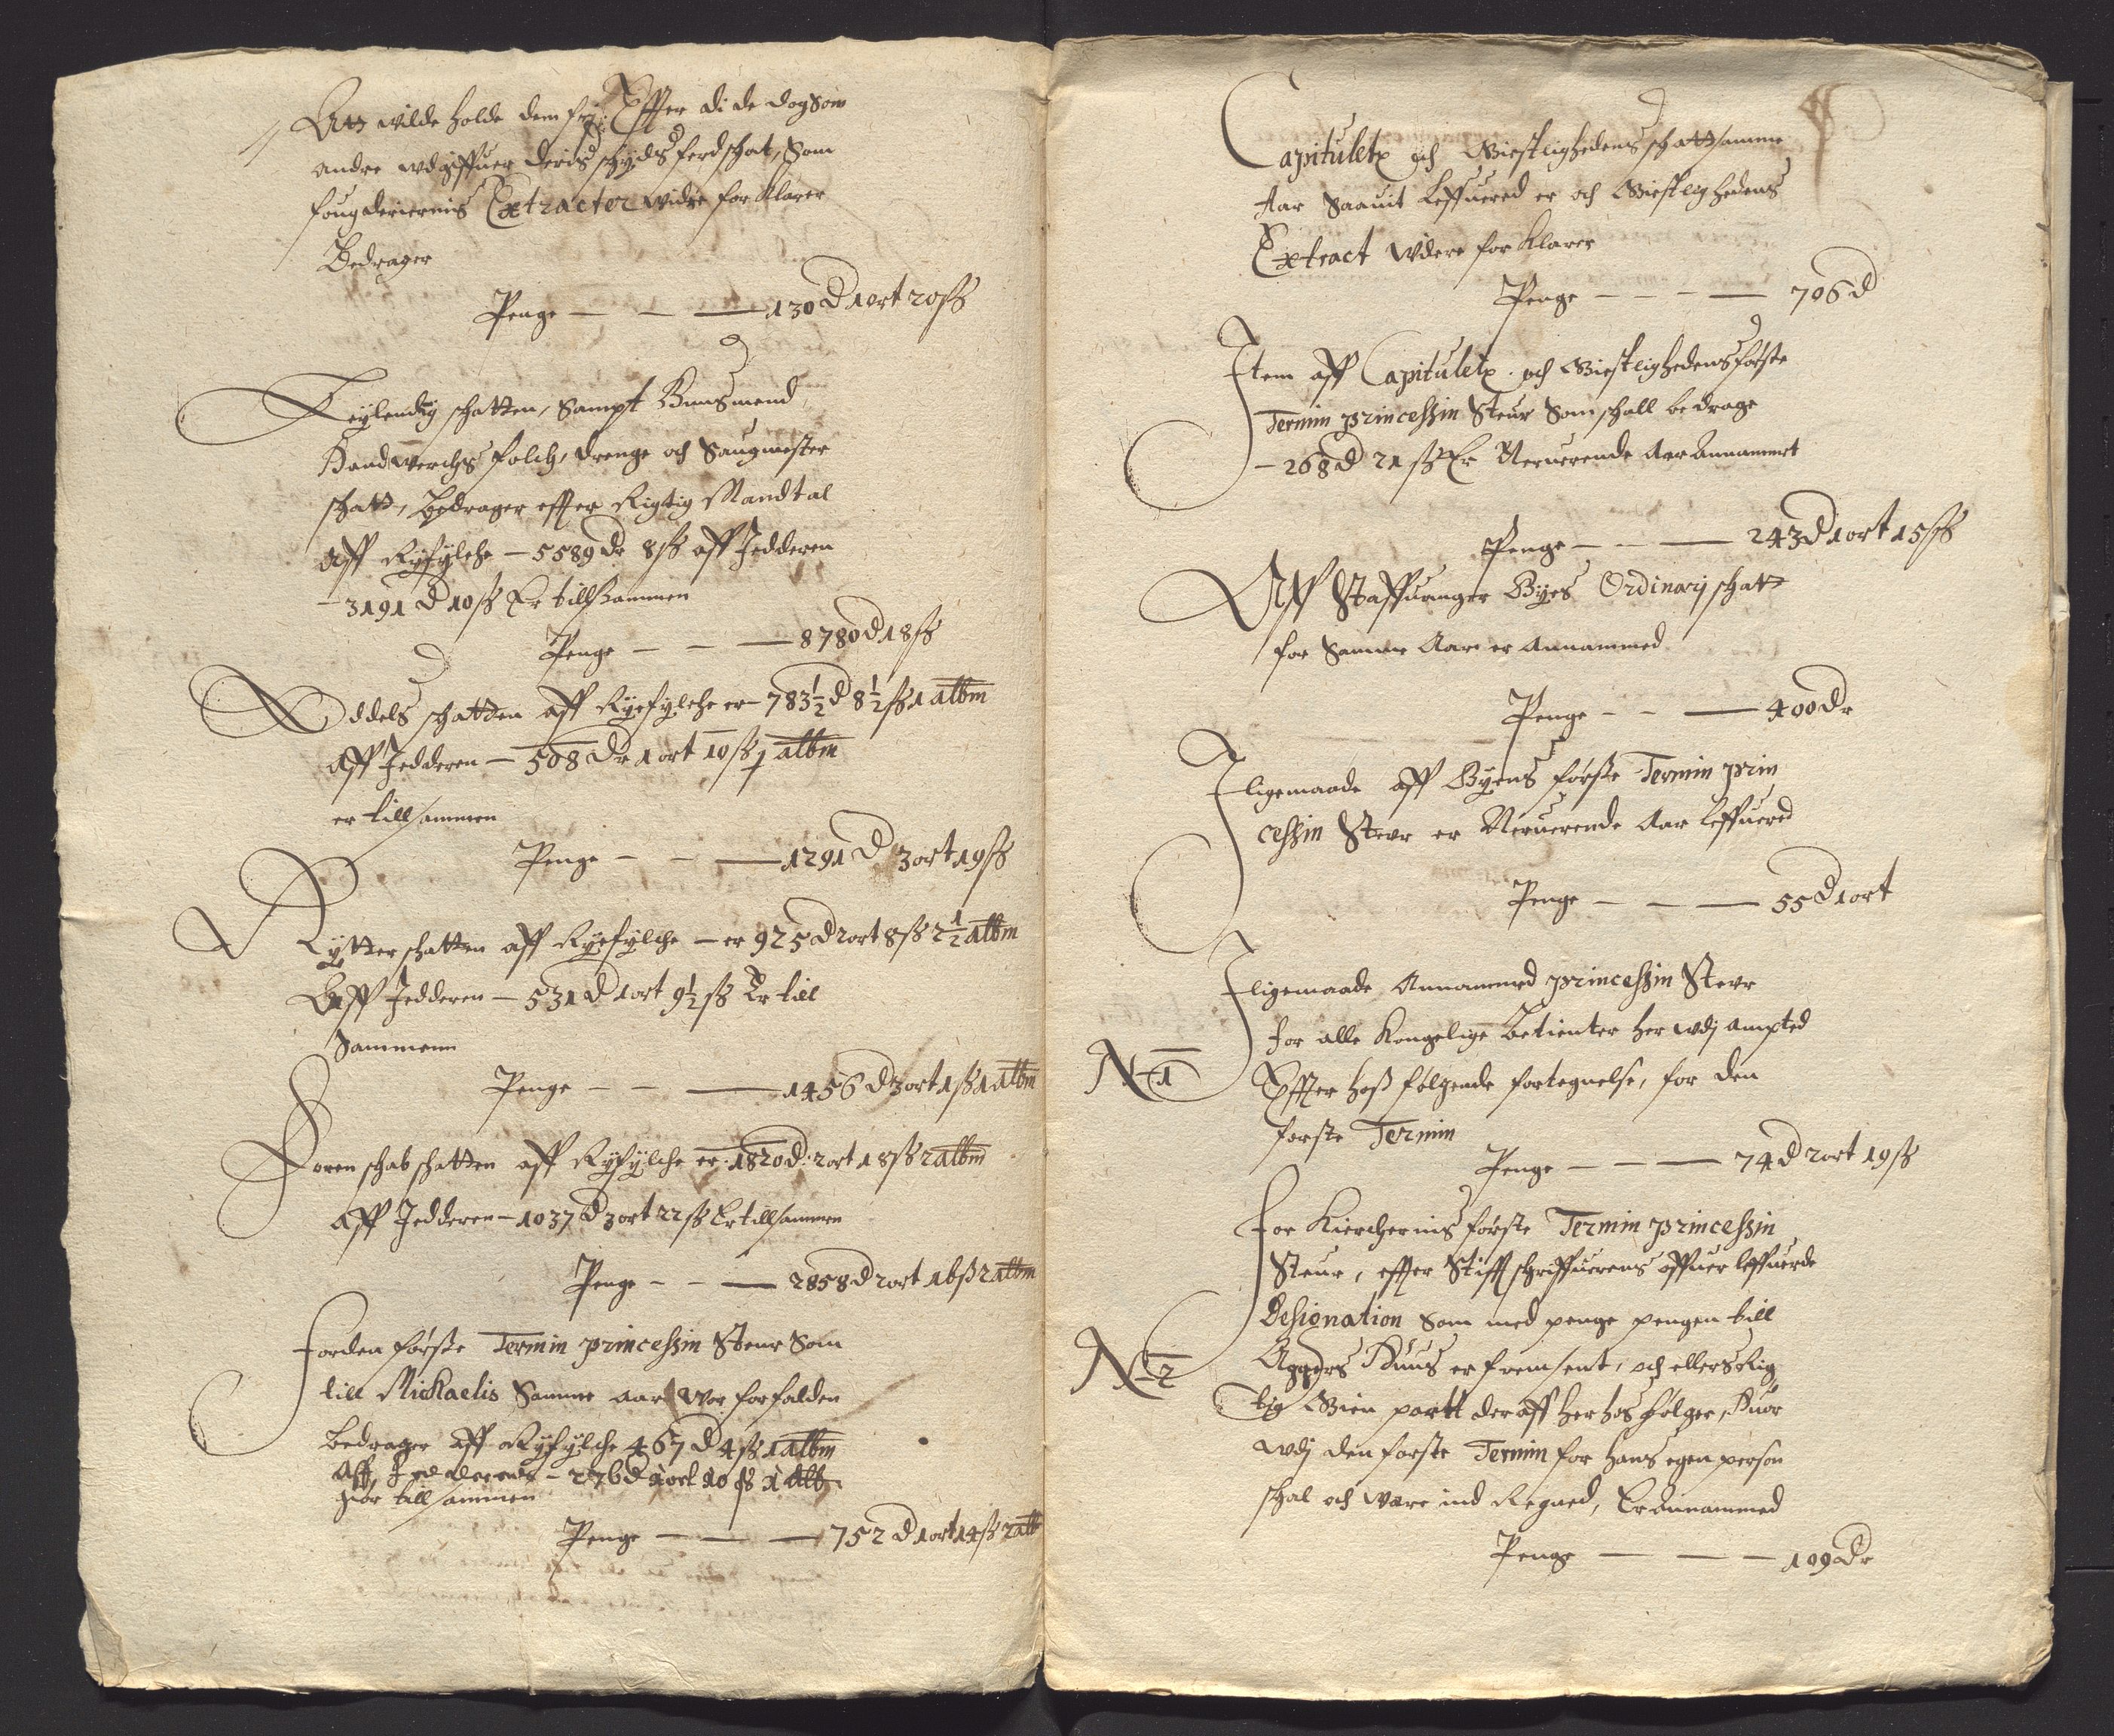 Att wilde holde dem frj: Effter di de dog som
andre udgiffuer deris schyds ferd schat, Som
fougderiernis Extracter widre forklarer
Bedrager
Penge — — — 130 d 1 ort 20 ß
Leylendig schatten, Sampt Huusmend
Handwerchs folch, drenge och Saugmester
schatt, Bedrager effter Rigtig Mandtal
Aff Ryfylche — 5589 dr 8 ß aff Jedderen
— 3191 d 10 ß Er till Sammen
Penge — — — 8780 d 18 ß
Oddels schatten aff Ryefylche er — 783½ d 8½ ß 1 albm
Aff Jedderen — 508 dr 1 ort 10 ß 1 albm
er till sammen
Penge — — — 1291 d 3 ort 19 ß
Rytter schatten aff Ryefylche — er 925 d 2 ort 8 ß 2½ albm
Aff Jedderen — 531 d 1 ort 9½ ß Er till
Sammenn
Penge — — — 1456 d 3 ort 1 ß 1 albm
Foren schab schatten aff Ryfylche er: 1820 d: 2 ort 18 ß 2 albm
Aff Jedderen — 1037 d 3 ort 22 ß Er till sammen
Penge — — — 2858 d 2 ort 16 ß 2 albm
For den første Termin princeßin Steur Som
till Mickaelis Samme aar war forfalden
Bedrager aff Ryfylche 467 d 4 ß 1 albm
Aff Jedderens — 276 d 1 ort 10 ß 1 alb
giør till sammen
Penge — — — 752 d 1 ort 14 ß 2 alb
Capituletz och Giestlighedens schatt samme
Aar Saauit Leffuered er och Giestlighedens
Extract widere forklarer
Penge — — — — 706 d
Item aff Capituletz och Giestlighedens første
Termin princeßin Steur Som schall bedrage
— 268 d 21 ß Er Neruerende Aar Annammet
Penge — — — 243 d 1 ort 15 ß
Aff Staffuanger Byes Ordinarij schatt
for Samme Aar er Annammed
Penge — — — 400 dr
Iligemaade aff Byens første Termin prin
ceßin Steur er Neruerende Aar Leffuered
Penge — — — 55 d 1 ort
Iligemaade Annammed princeßin Steur
for alle Kongelige Betienter her wdj ampted
N 1
Effter hoß følgende fortegnelse, for den
første Termin
Penge — — — 74 d 2 ort 19 ß
For Kierchernis første Termin princeßin
Steur, effter Stifftschriffuerens offuer leffuerde
Designation Som med penge pengen till
N 2
Aggers Huus er fremsent, och ellers Rig
tig Gien partt der aff her hos følger, Huor
wdj den første Termin for hans egen person
schal och were ind Regned, Er Annammed
Penge — — — 109 dr